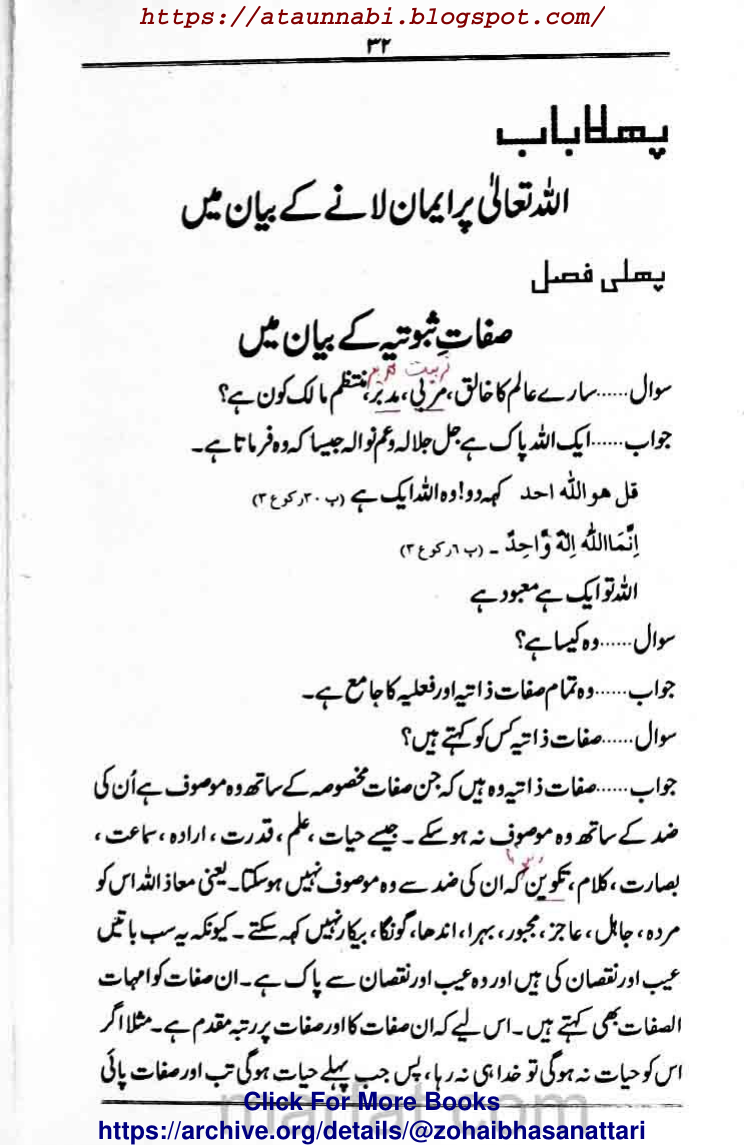 https://ataunnabi.blogspot.com/
۳۲
پہلا باب
اللہ تعالیٰ پر ایمان لانے کے بیان میں
پہلی فصل
صفاتِ ثبوتیہ کے بیان میں
سوال......سارے عالم کا خالق، مربی، مدبر، منتظم مالک کون ہے؟
جواب......ایک اللہ پاک ہے جل جلالہ وعم نوالہ جیسا کہ وہ فرماتا ہے۔
قل هو الله احد کہہ دو! وہ اللہ ایک ہے (پ ۳۰، رکوع ۳)
اِنَّمَا اللّٰهُ اِلٰهٌ وَّاحِدٌ ۔ (پ ۶، رکوع ۳)
اللہ تو ایک ہے معبود ہے
سوال......وہ کیسا ہے؟
جواب......وہ تمام صفات ذاتیہ اور فعلیہ کا جامع ہے۔
سوال......صفات ذاتیہ کس کو کہتے ہیں؟
جواب......صفات ذاتیہ وہ ہیں کہ جن صفات مخصوصہ کے ساتھ وہ موصوف ہے اُن کی
ضد کے ساتھ وہ موصوف نہ ہو سکے ۔ جیسے حیات ،علم ، قدرت ، ارادہ ، سماعت ،
بصارت ، کلام ، تکوین کہ ان کی ضد سے وہ موصوف نہیں ہوسکتا۔ یعنی معاذ اللہ اس کو
مردہ ، جاہل ، عاجز ، مجبور ، بہرا ، اندھا ، گونگا ، بیکار نہیں کہہ سکتے ۔ کیونکہ یہ سب باتیں
عیب اور نقصان کی ہیں اور وہ عیب اور نقصان سے پاک ہے ۔ ان صفات کو امہات
الصفات بھی کہتے ہیں ۔ اس لیے کہ ان صفات کا اور صفات پر رتبہ مقدم ہے ۔ مثلا اگر
اس کو حیات نہ ہوگی تو خدا ہی نہ رہا ، پس جب پہلے حیات ہوگی تب اور صفات پائی
Click For More Books
https://archive.org/details/@zohaibhasanattari